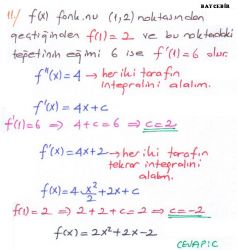 BAYCEBİR
11/ f(x) fonk.nu (1,2) noktasından
geçtiğinden f(1)=2 ve bu noktadaki
teğetinin eğimi 6 ise f'(1)=6 olur.
f''(x)=4 → her iki tarafın
integralini alalım.
f'(x)=4x+c
f'(1)=6 ⇒ 4+c=6 ⇒ c=2
f'(x)=4x+2 → her iki tarafın
tekrar integralini
alalım.
f(x)=4x²/2+2x+c
f(1)=2 ⇒ 2+2+c=2 ⇒ c=-2
f(x)=2x²+2x-2
CEVAP C